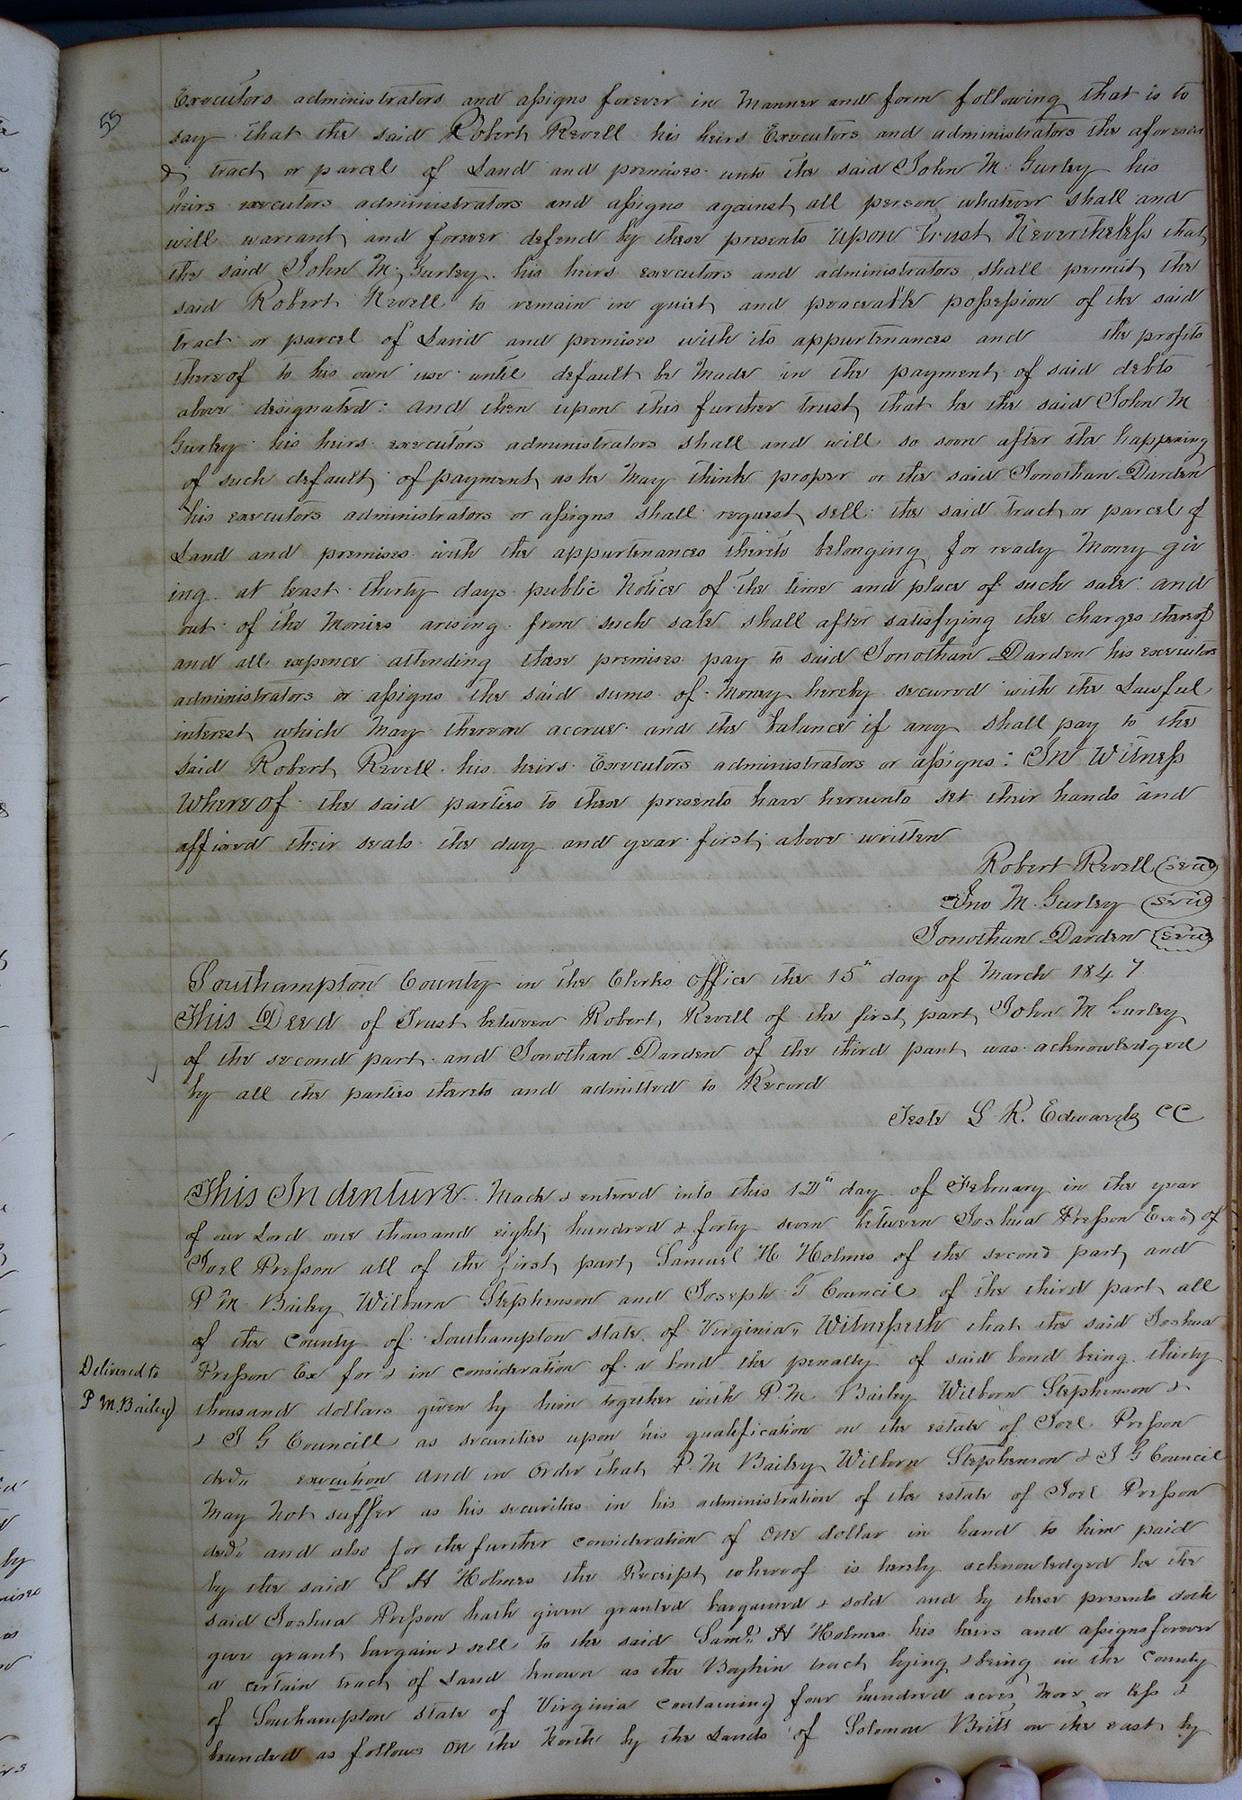 55
Executors administrators and assigns forever in Manner and form following that is to
say that the said Robert Revell his heirs Executors and administrators the aforesai
d tract or parcel of Land and premises unto the said John M Gurley his
heirs executors administrators and assigns against all person whatever shall and
will warrant and forever defend by these presents Upon Trust Nevertheless that
the said John M. Gurley his heirs executors and administrators shall permit the
said Robert Revell to remain in quiet and peaceable possession of the said
tract or parcel of Land and premises with its appurtenances and the profits
thereof to his own use until default be Made in the payment of said debts
above designated: and then upon this further trust that he the said John M
Gurley his heirs executors administrators shall and will so soon after the happening
of such default of payment as he May think proper or the said Jonathan Darden
his executors administrators or assigns shall request sell the said tract or parcel of
Land and premises with the appurtenances thereto belonging for ready Money giv
ing at least thirty days public Notice of the time and place of such sale and
out of the Monies arising from such sale shall after satisfying the charges thereof
and all expence attending these premises pay to said Jonathan Darden his executors
administrators or assigns the said sums of Money hereby secured with the Lawful
interest which May thereon accrue and the balance if any shall pay to the
said Robert Revell his heirs Executors administrators or assigns: In Witness
Whereof the said parties to these presents have hereunto set their hands and
affixed their seals the day and year first above written
Robert Revell (Seal)
Jno M Gurley (Seal)
Jonathan Darden (Seal)
Southampton County in the Clerks office the 15" day of March 1847
This Deed of Trust between Robert Revell of the first part John M Gurley
of the second part and Jonathan Darden of the third part was acknowledged
by all the parties thereto and admitted to Record
Teste L. R. Edwards CC
This Indenture Made & entered into this day of February in the year
of our Lord one thousand eight hundred & forty seven between Joshua Presson Exor of
Joel Presson all of the first part Samuel H Holmes of the second part and
P M Bailey Wilburn Stephenson and Joseph G Council of the third part all
of the County of Southampton state of Virginia, Witnesseth that the said Joshua
Presson Ex for & in consideration of a bond the penalty of said bond being thirty
Delivered to
P M. Bailey
thousand dollars given by him together with P. M Bailey Wilborn Stephenson &
& J G Councill as securities upon his qualification on the estate of Joel Presson
decd. execution and in order that P. M Bailey Wilborn Stephenson & J G Council
May not suffer as his securities in his administration of the estate of Joel Presson
decd. and also for the further consideration of one dollar in hand to him paid
by the said S H Holmes the Receipt whereof is hereby acknowledged he the
said Joshua Presson hath given granted bargained & sold and by these presents doth
give grant bargain & sell to the said Saml. H Holmes his heirs and assigns forever
a certain tract of Land known as the Boykin tract lying & being in the County
of Southampton state of Virginia containing four hundred acres More or less &
bounded as follows on the North by the Lands of Solomon Britt on the east by